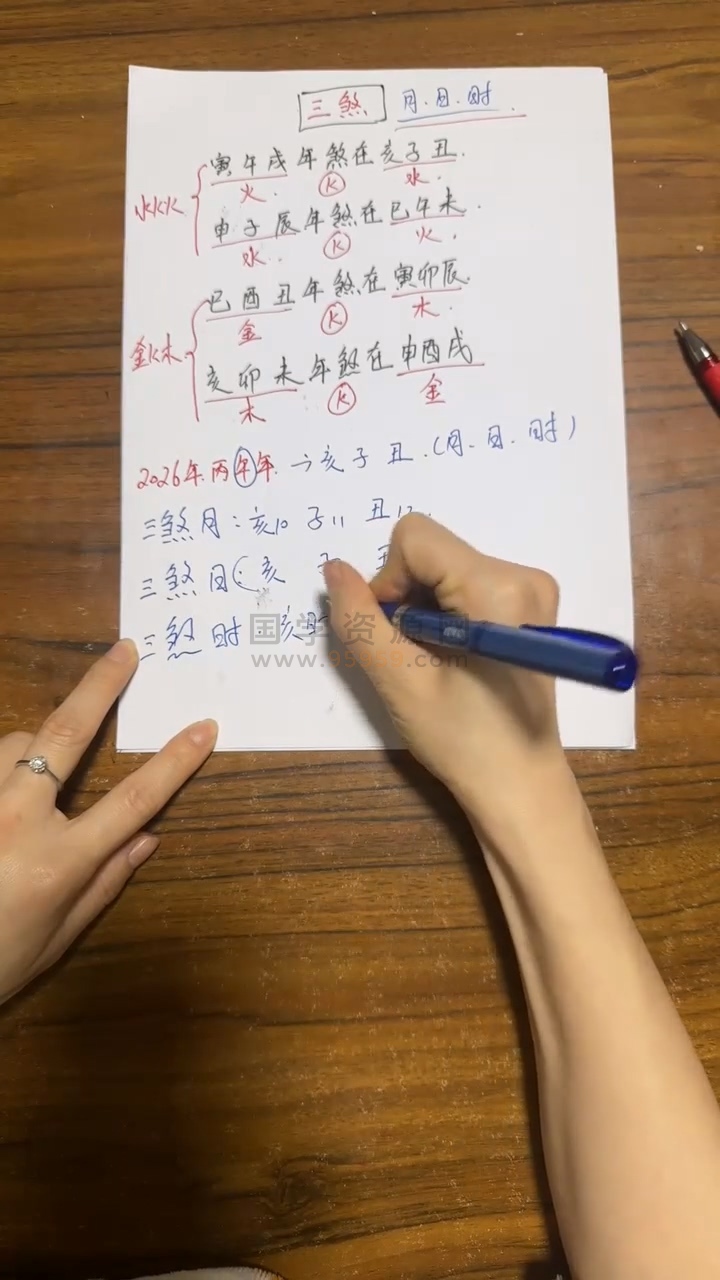 三煞 月.日.时.
寅午戌年煞在亥子丑.
火. K 水.
水K火
申子辰年煞在巳午未.
水. K 火.
巳酉丑年煞在寅卯辰.
金 K 木.
金K木
亥卯未年煞在申酉戌
木 K 金
2026年.丙午年 →亥子丑.(月.日.时)
三煞月:亥10 子11 丑12.
三煞日:亥
三煞时:亥时
国学资源网